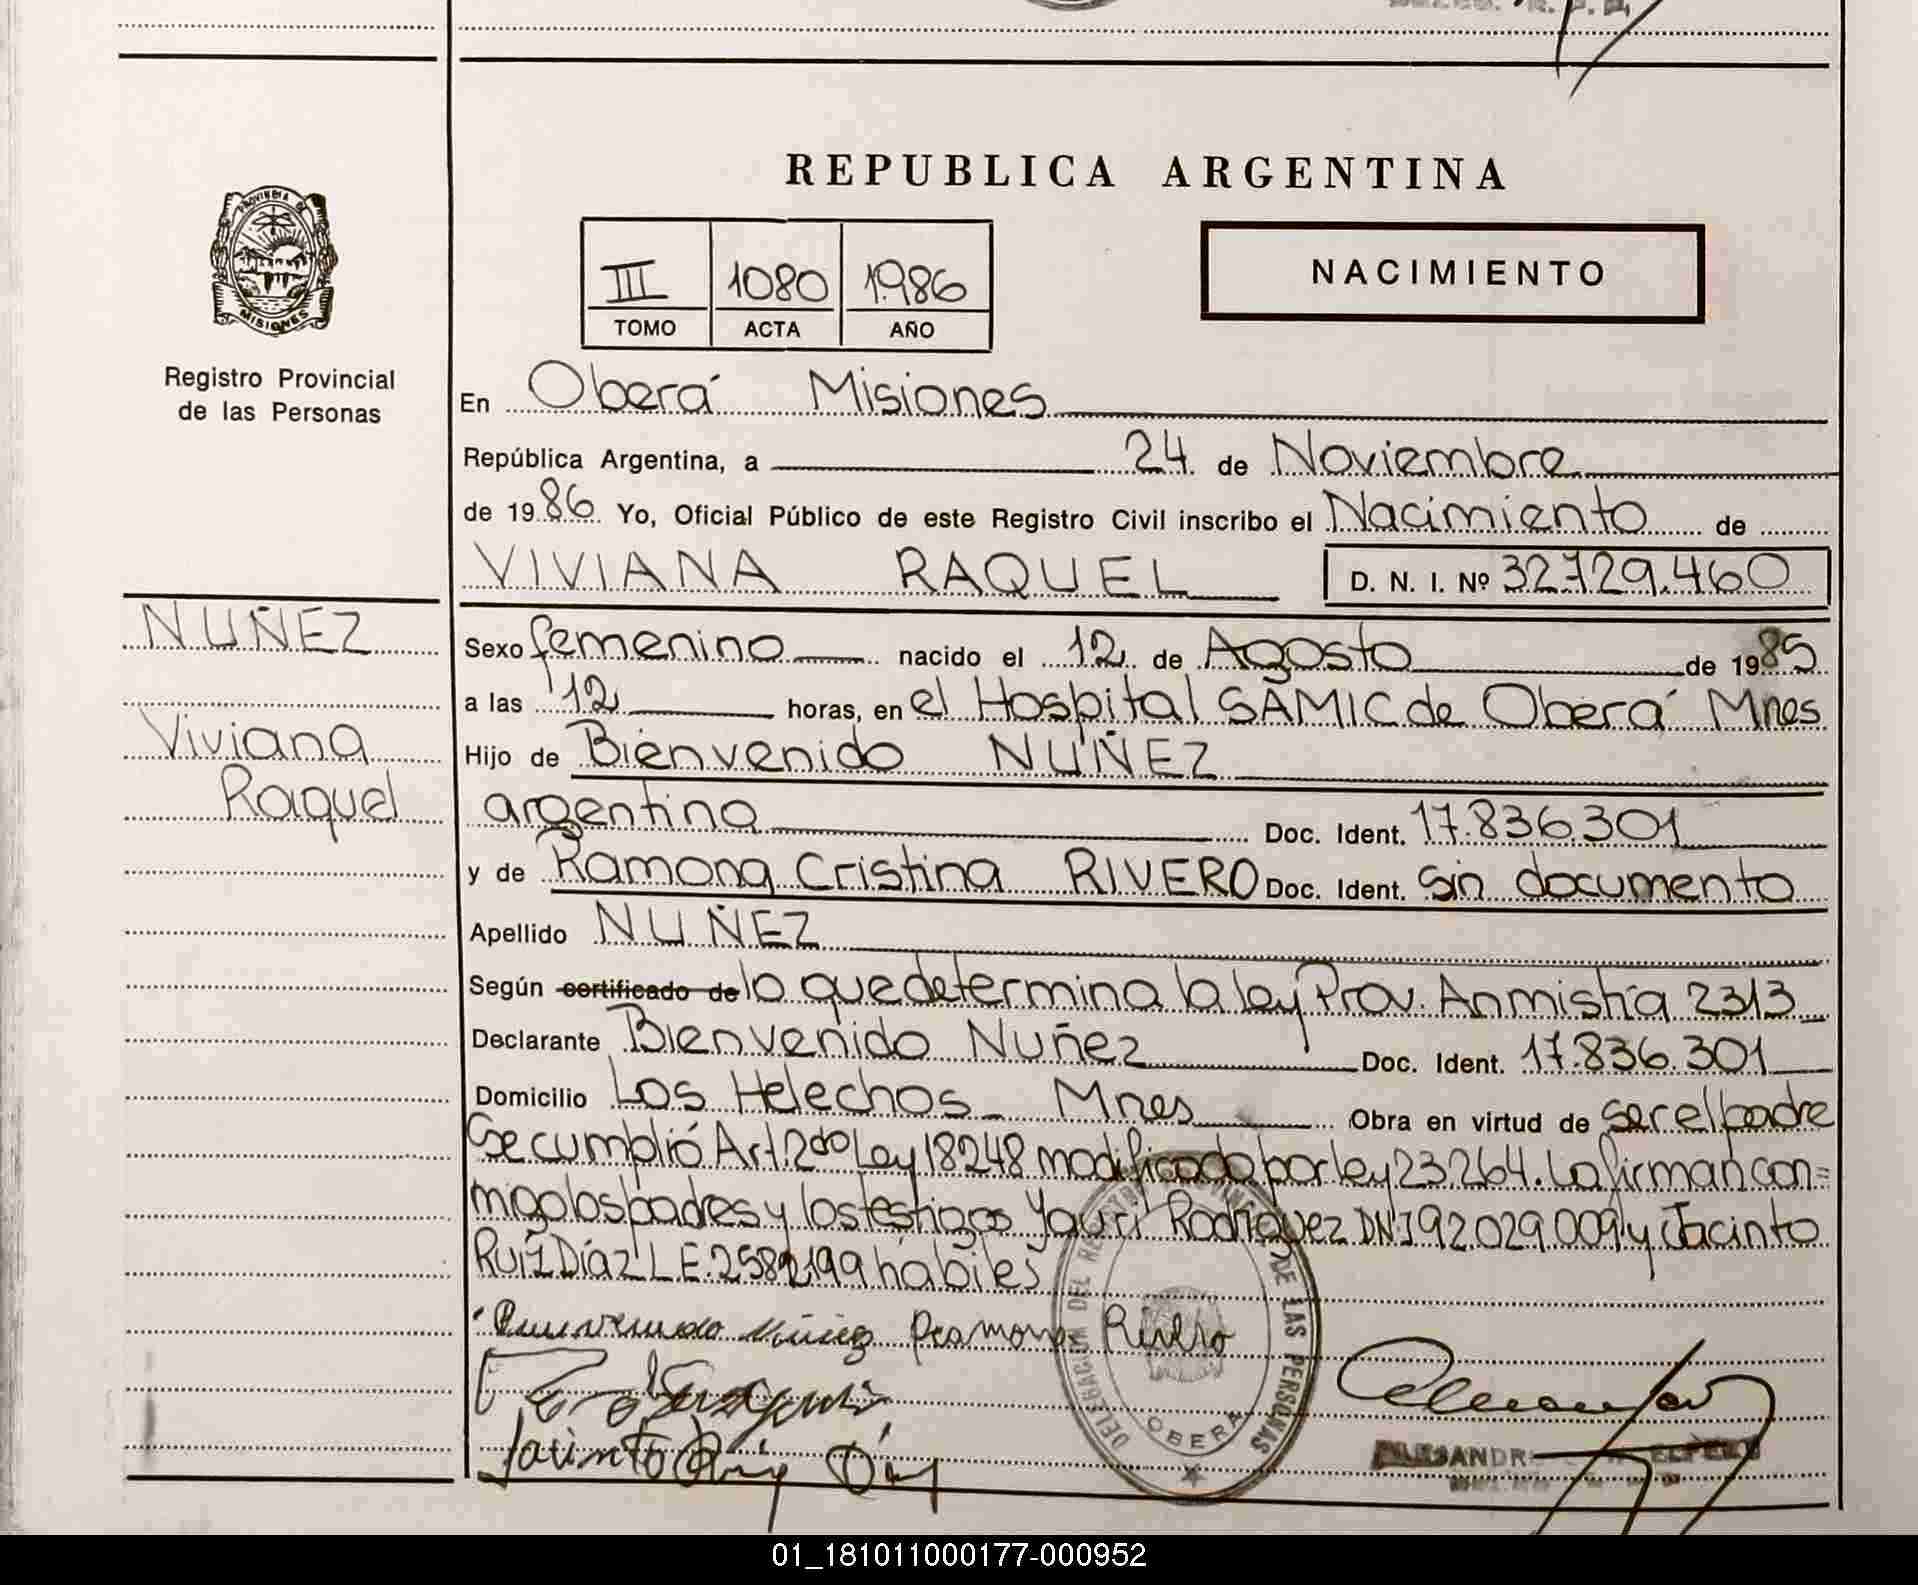 REPUBLICA ARGENTINA
PROVINCIA DE
MISIONES
Registro Provincial
de las Personas
III 1080 1986
TOMO ACTA AÑO
NACIMIENTO
En Oberá Misiones
República Argentina, a 24 de Noviembre
de 1986 Yo, Oficial Público de este Registro Civil inscribo el Nacimiento de
VIVIANA RAQUEL D. N. I. Nº 32.729.460
NUÑEZ
Viviana
Raquel
Sexo femenino nacido el 12 de Agosto de 1985
a las 12 horas, en el Hospital SAMIC de Oberá Mnes
Hijo de Bienvenido NUÑEZ
argentino Doc. Ident. 17.836.301
y de Ramona Cristina RIVERO Doc. Ident. Sin documento
Apellido NUÑEZ
Según certificado de lo que determina la ley Prov. Anmistía 2313
Declarante Bienvenido Nuñez Doc. Ident. 17.836.301
Domicilio Los Helechos Mnes Obra en virtud de ser el padre
Se cumplió Art. 2do Ley 18248 modificado por ley 23.264. La firman con=
migo los padres y los testigos Yauri Rodríguez DNI 92.029.009 y Jacinto
Ruíz Díaz L.E. 2582199 hábiles
Nuñez Ramona Rivero
Jacinto Ruiz Diaz
DELEGACION DEL REGISTRO PROVINCIAL DE LAS PERSONAS
OBERA
01_181011000177-000952